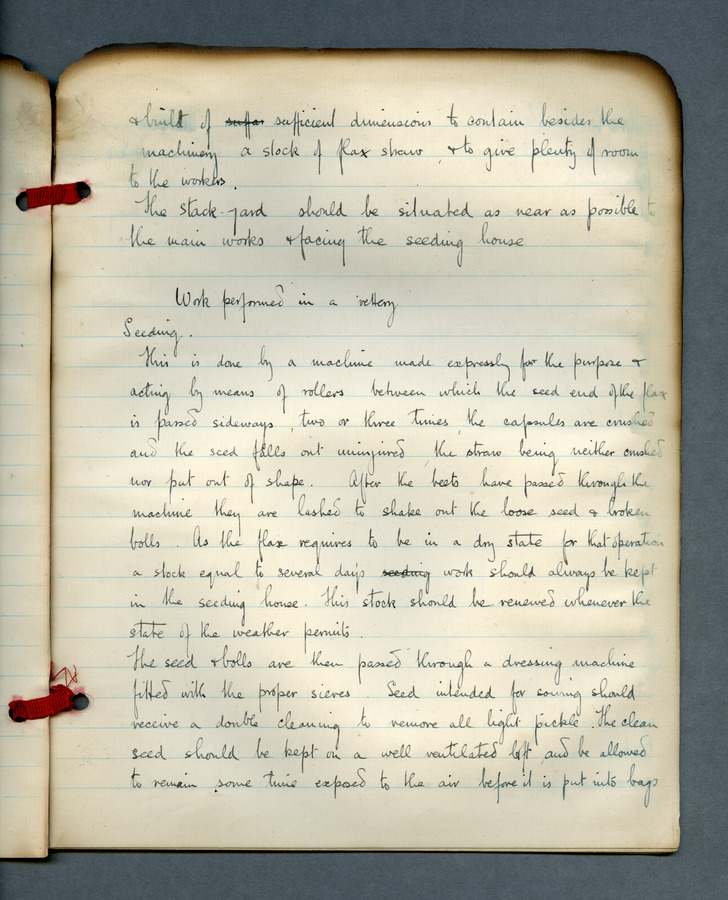 & built of suffar sufficient dimensions to contain besides the
machinery a stock of flax straw, & to give plenty of room
to the workers.
The stack-yard should be situated as near as possible to
the main works & facing the seeding house
Work performed in a rettery
Seeding.
This is done by a machine made expressly for the purpose &
acting by means of rollers between which the seed end of the flax
is passed sideways, two or three times, the capsules are crushed
and the seed falls out uninjured, the straw being neither crushed
nor put out of shape. After the beets have passed through the
machine they are lashed to shake out the loose seed & broken
bolls. As the flax requires to be in a dry state for that operation
a stock equal to several days seeding work should always be kept
in the seeding house. This stock should be renewed whenever the
state of the weather permits.
The seed & bolls are then passed through a dressing machine
fitted with the proper sieves. Seed intended for sowing should
receive a double cleaning to remove all light pickle. The clean
seed should be kept on a well ventilated loft, and be allowed
to remain some time exposed to the air before it is put into bags